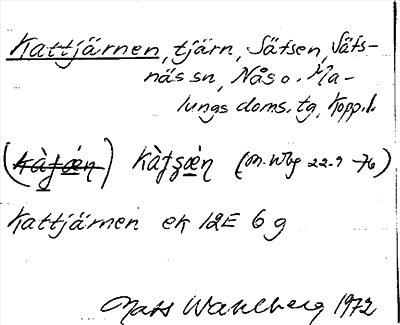 Kattjärnen, tjärn, Säfsen, Säfs-
näs sn, Nås o. Ma-
lungs doms. tg, Kopp. l.
Kàtsæ̀n (M. Wbg 22.9 -76)
Kattjärnen ek 12E 6g
Mats Wahlberg 1972